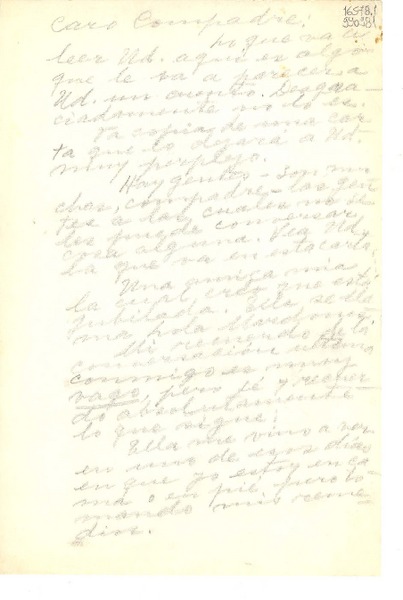 16578.1
99098.1
Caro Compadre:
Lo que va a
leer Ud. aquí es algo
que le va a parecer a
Ud. un cuento. Desgra-
ciadamente no lo es.
Va copia de una car
ta que lo dejará a Ud.
muy perplejo.
Hay gentes - son mu
chas, compadre - las gen
tes a las cuales no se
les puede conversar
cosa alguna. Vea Ud.
la que va en esta carta.
Una amiga mía
la cual creo que está
jubilada. Ella se lla
ma Lola
Mi recuerdo de la
conversación
conmigo es muy
vago, pero sé y recuer
do absolutamente
lo que sigue:
Ella me vino a ver
en uno de esos días
en que yo estoy en ca
ma o en pie, pero to
mando mis reme
dios.